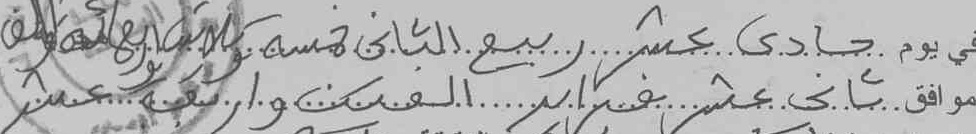 في يوم حادى عشر ربيع الثانى خمسة وثلاثين واربعمائة والف
موافق ثانى عشر فبراير الفين واربعة عشر